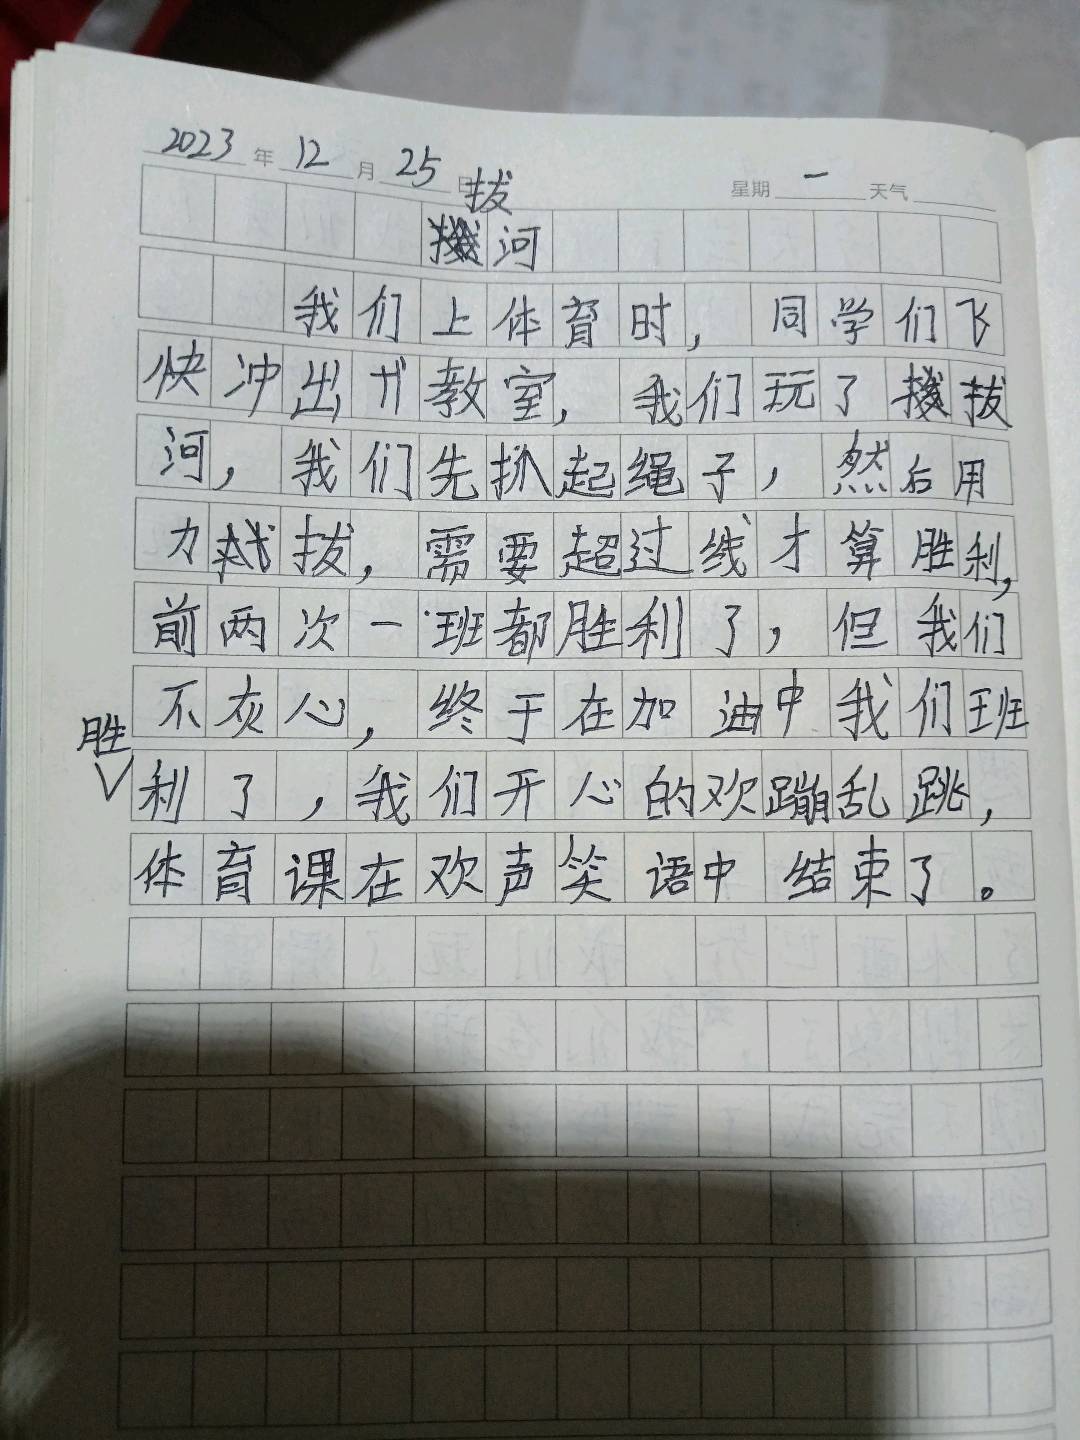 2023年12月25日 星期一 天气
拔河
我们上体育时，同学们飞
快冲出教室，我们玩了拔
河，我们先扒起绳子，然右用
力拔，需要超过线才算胜利，
前两次一班都胜利了，但我们
不灰心，终于在加油中我们班
胜利了，我们开心的欢蹦乱跳，
体育课在欢声笑语中结束了。